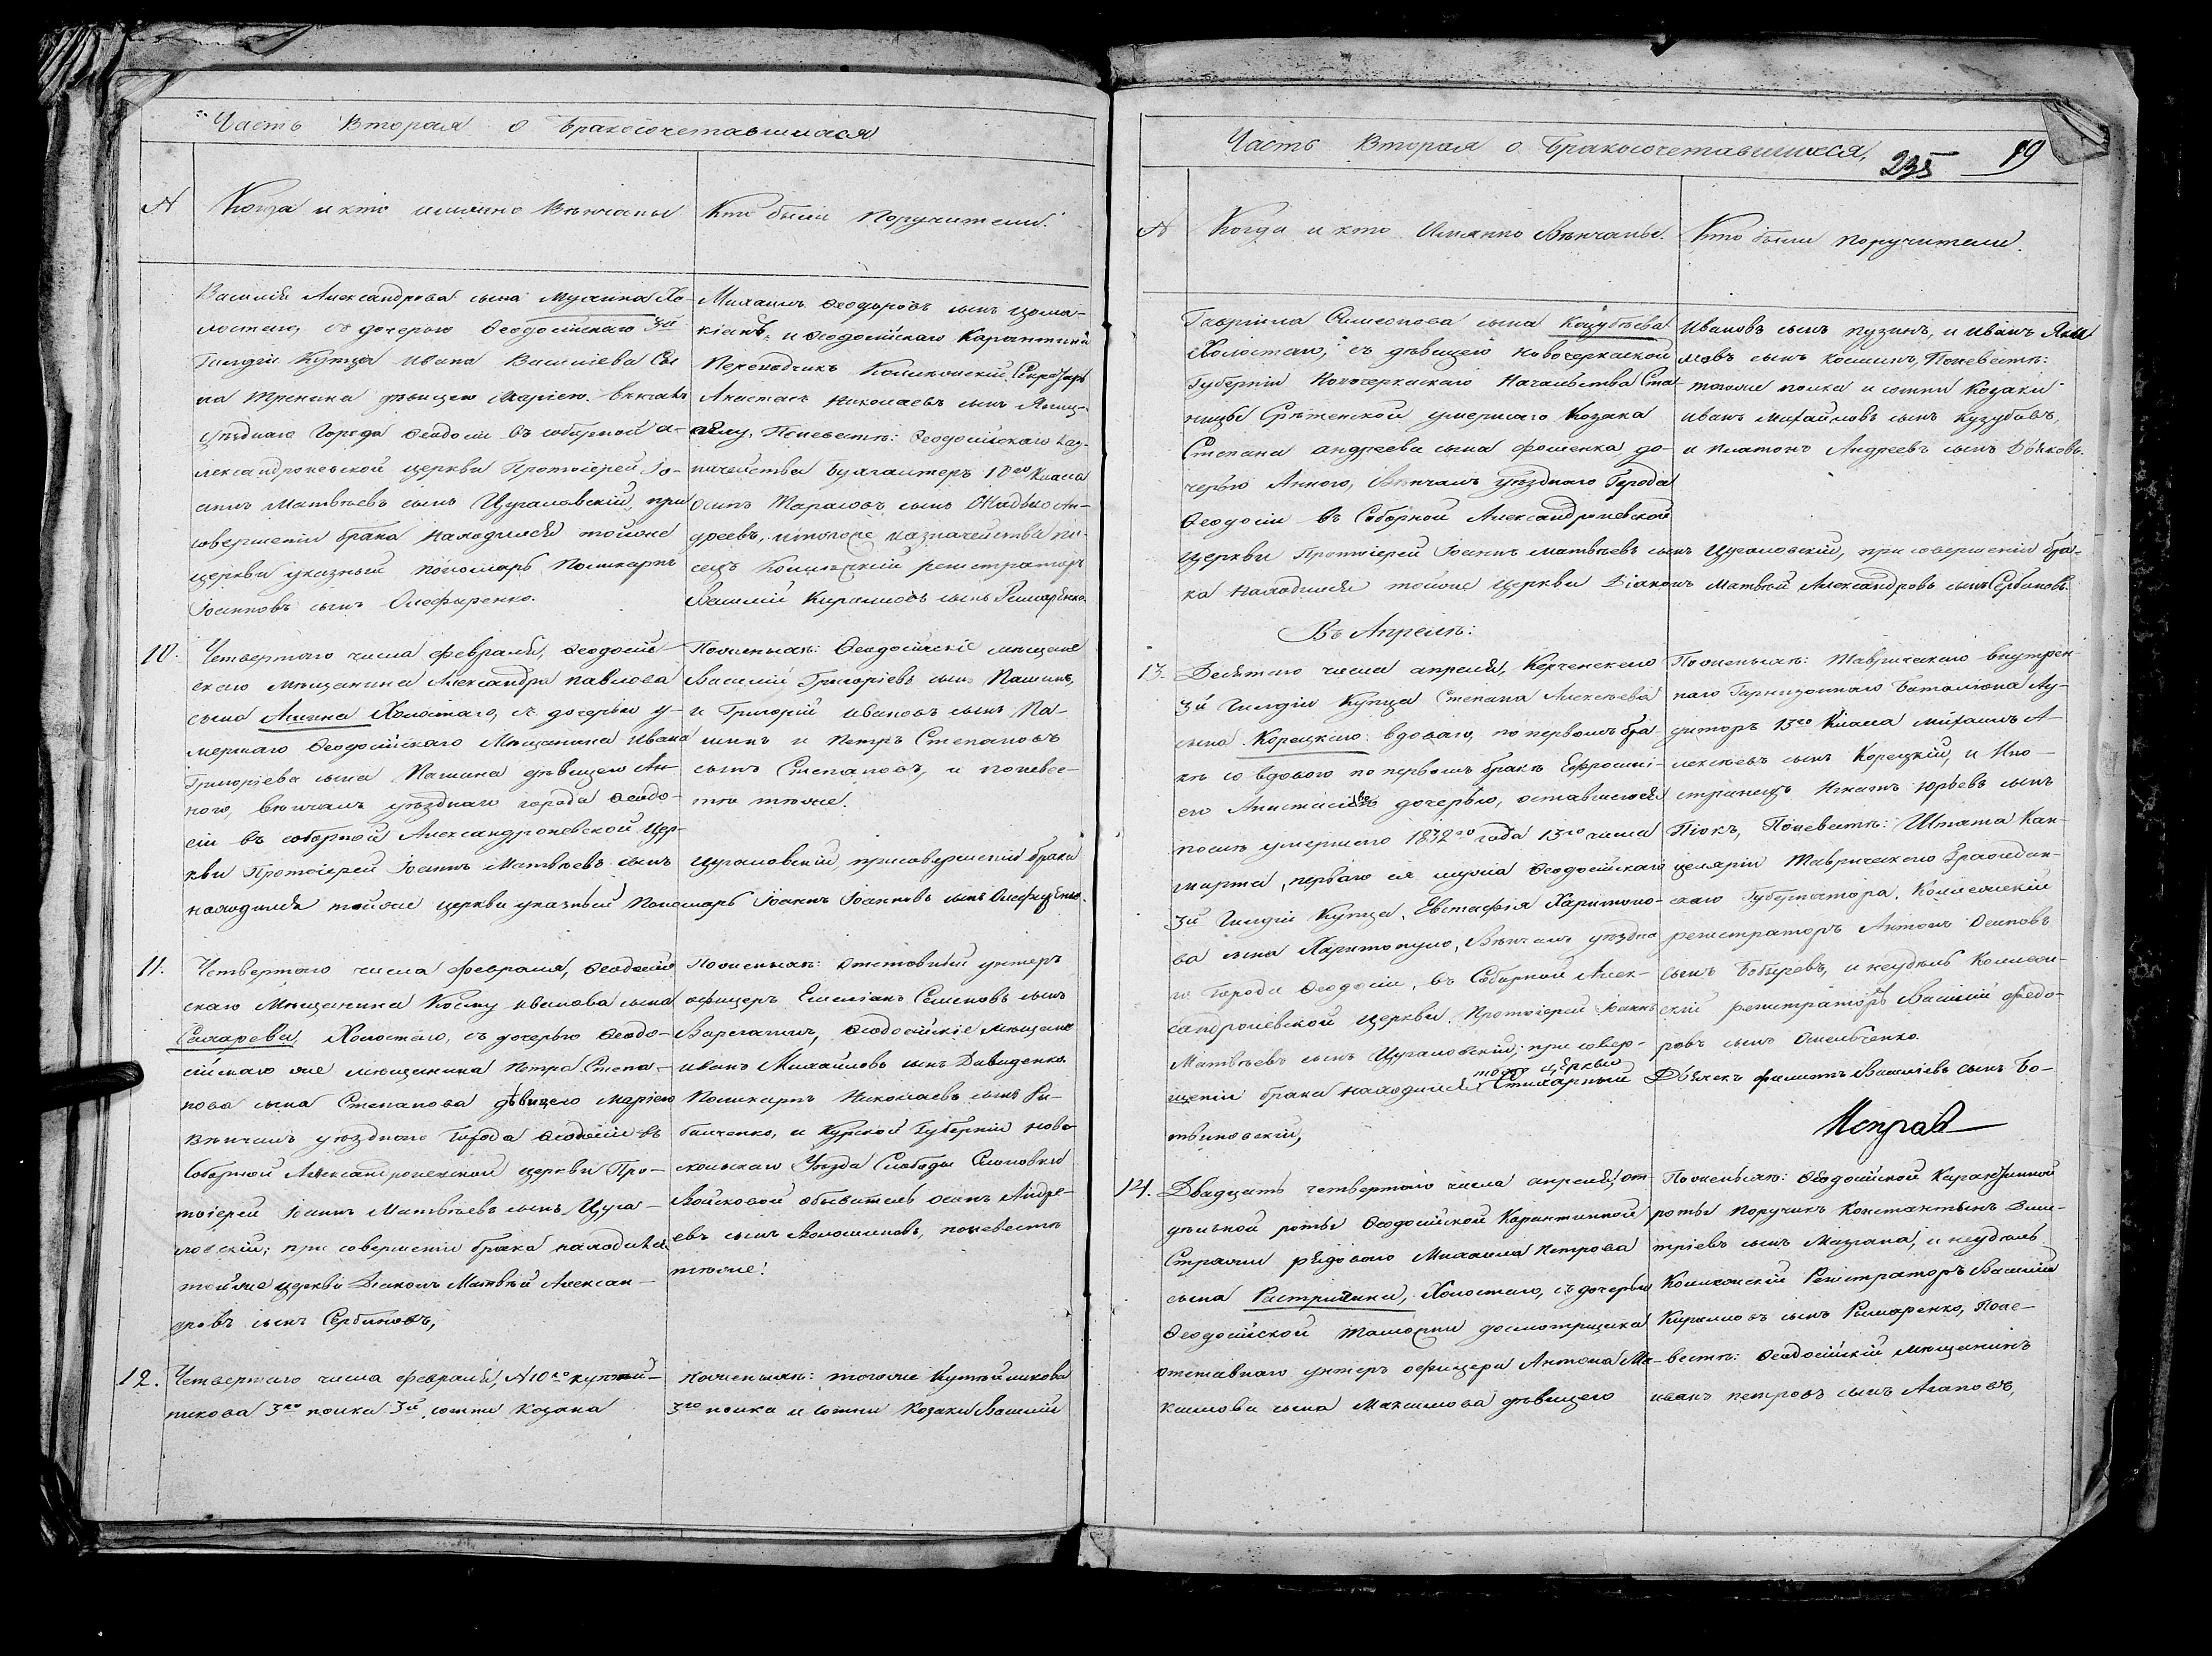 Часть Вторая о бракосочетавшихся
№
Когда и кто именно Венчаны
Кто были Поручители.
Василія Александрова сына Мухина Хо-
лостаго, съ дочерью Ѳеодосійскаго 3й
Гильдіи Купца Ивана Василіева Сы
на Тренина девицею Маріею. венчалъ
уезднаго Города Ѳеодосіи въ соборной а-
лександроневской церкви Протоіерей Іо-
аннъ Матвеевъ сынъ Цугаловскій, при
совершеніи брака находился тойже
церкви указный пономарь Поликарпъ
Іоанновъ сынъ Олефыренко.
Михаилъ Ѳеодоровъ сынъ
и Ѳеодосійскаго Карантина
Переводчикъ Коллежскій Секретарь
Анастасъ Николаевъ сынъ
Поневесте: Ѳеодосійскаго каз-
начейства Бухгалтеръ 10го Класса
Осипъ Тарасовъ сынъ Ан-
дреевъ, итогоже казначейства пи-
сецъ Коллежскій регистраторъ
Василій Кириловъ сынъ Рымаренко.
10.
Четвертаго числа февраля, Ѳеодосій-
скаго Мещанина Александра павлова
сына Ашина Холостаго, съ дочерью у-
мершаго Ѳеодосійскаго Мещанина Ивана
Григоріева сына Пашина девицею Ан-
ною, венчалъ уезднаго города Ѳеодо-
сіи въ соборной Александроневской Цер-
кви Протоіерей Іоаннъ Матвеевъ сынъ Цугаловскій, присовершеніи брака
находился тойже церкви указный Пономарь Іоаннъ Іоанновъ сынъ Олефыренко.
Поженихе: Ѳеодосійскіе мещане
Василій Григоріевъ сынъ Пашинъ,
и Григорій Ивановъ сынъ Па-
шинъ и Петръ Степановъ
сынъ Степановъ, и поневес-
те теже.
11.
Четвертаго числа февраля, Ѳеодосій
скаго Мещанина Косму иванова сына
Сахарева Холостаго, съ дочерью Ѳеодо-
сійскаго же мещанина Петра Степа-
нова сына Степанова девицею Маріею
венчалъ уезднаго Города Ѳеодосіи въ
Соборной Александроневской церкви Про-
тоіерей Іоаннъ Матвеевъ сынъ Цуга-
ловскій; при совершеніи брака находился
тойже церкви Діаконъ Матвей Алексан-
дровъ сынъ Сербиновъ,
Поженихе: Отставный унтеръ
офицеръ Емеліанъ Семеновъ сынъ
Ѳеодосійскіе мещане
иванъ Михайловъ сынъ Давиденко
Поликарпъ Николаевъ сынъ Ры-
бальченко, и Курской Губерніи ново
оскольскаго Уезда Слободы
Войсковой обыватель осипъ Андре-
евъ сынъ Волошиновъ, поневесте
теже.
12.
Четвертаго числа февраля, №10го кутей-
никова 3го полка 3й сотни Козака
Поженихе: тогоже Кутейникова
3го полка и сотни Козаки Василій
Часть Вторая о Бракосочетавшихся,
235
19
№
Когда и кто Имянно Венчаны.
Кто были поручители.
Гавріила Симеонова сына Коцубеева
Холостаго, съ девицею новочеркаской
Губерніи Новочеркаскаго Начальства Ста-
ницы Сретенской умершаго Козака
Степана андреева сына Фоменка до-
черью Анною, Венчалъ уезднаго Города
Ѳеодосіи въ Соборной Александроневской
церкви Протоіерей Іоаннъ матвеевъ сынъ Цугаловскій, при совершеніи бра-
ка находился тойже Церкви Діаконъ Матвей Александровъ сынъ Сербиновъ.
Ивановъ сынъ пузинъ, и иванъ Яки
мовъ сынъ Кошинъ, Поневесте:
тогоже полка и сотни Козаки
иванъ михайловъ сынъ Кузубовъ,
и платонъ Андреевъ сынъ Дьяковъ.
Въ Апреле:
13.
Десятаго числа апреля, Керченскаго
3й Гильдіи Купца Степана Алексеева
сына Корецкаго вдоваго, по первомъ бра
ке со вдовою по первомъ браке Ефросині-
ею Анастасіевою дочерью, оставшеюся
после умершаго 1832го года 13го числа
марта, перваго ея мужа Ѳеодосійскаго
3й Гильдіи Купца, Евстафія Харитоно-
ва сына Харитопуло, Венчалъ уездна
го Города Ѳеодосіи, въ Соборной Алек-
сандроневской Церкви Протоіерей Іоаннъ
Матвеевъ сынъ Цугаловскій; при совер-
шеніи брака находился тояже церкви Стихарный Дьячекъ филиппъ Василіевъ сынъ Бо-
твиновскій,
Поженихе: Таврическаго внутрен
наго Гарнизоннаго Баталіона Ау-
диторъ 13го Класса Михаилъ А-
лексеевъ сынъ Корецкій, и Ино-
странецъ Игнатъ Юрьевъ сынъ
Піокъ, Поневесте: Штата Кан-
целяріи Таврическаго Граждан-
скаго Губернатора, Коллежскій
регистраторъ Антонъ Осиповъ
сынъ Бобыревъ, и неуделъ Коллеж-
скій регистраторъ Василій федо-
ровъ сынъ Омельченко.
14.
Двадцать четвертаго числа апреля, от-
дельной роты Ѳеодосійской Карантинной
Стражи рядоваго Михаила Петрова
сына Растригина, Холостаго, съ дочерью
Ѳеодосійской таможни досмотрщика
отставнаго унтеръ офицера Антона Ма-
ксимова сына Максимова девицею
Поженихе: Ѳеодосійской Карантинной
роты поручикъ Константинъ Дми-
тріевъ сынъ Мазгана, и неуделъ
Коллежскій Регистраторъ Василій
Кириловъ сынъ Рымаренко, Поне-
весте: Ѳеодосійскій мещанинъ
иванъ петровъ сынъ Агаповъ,